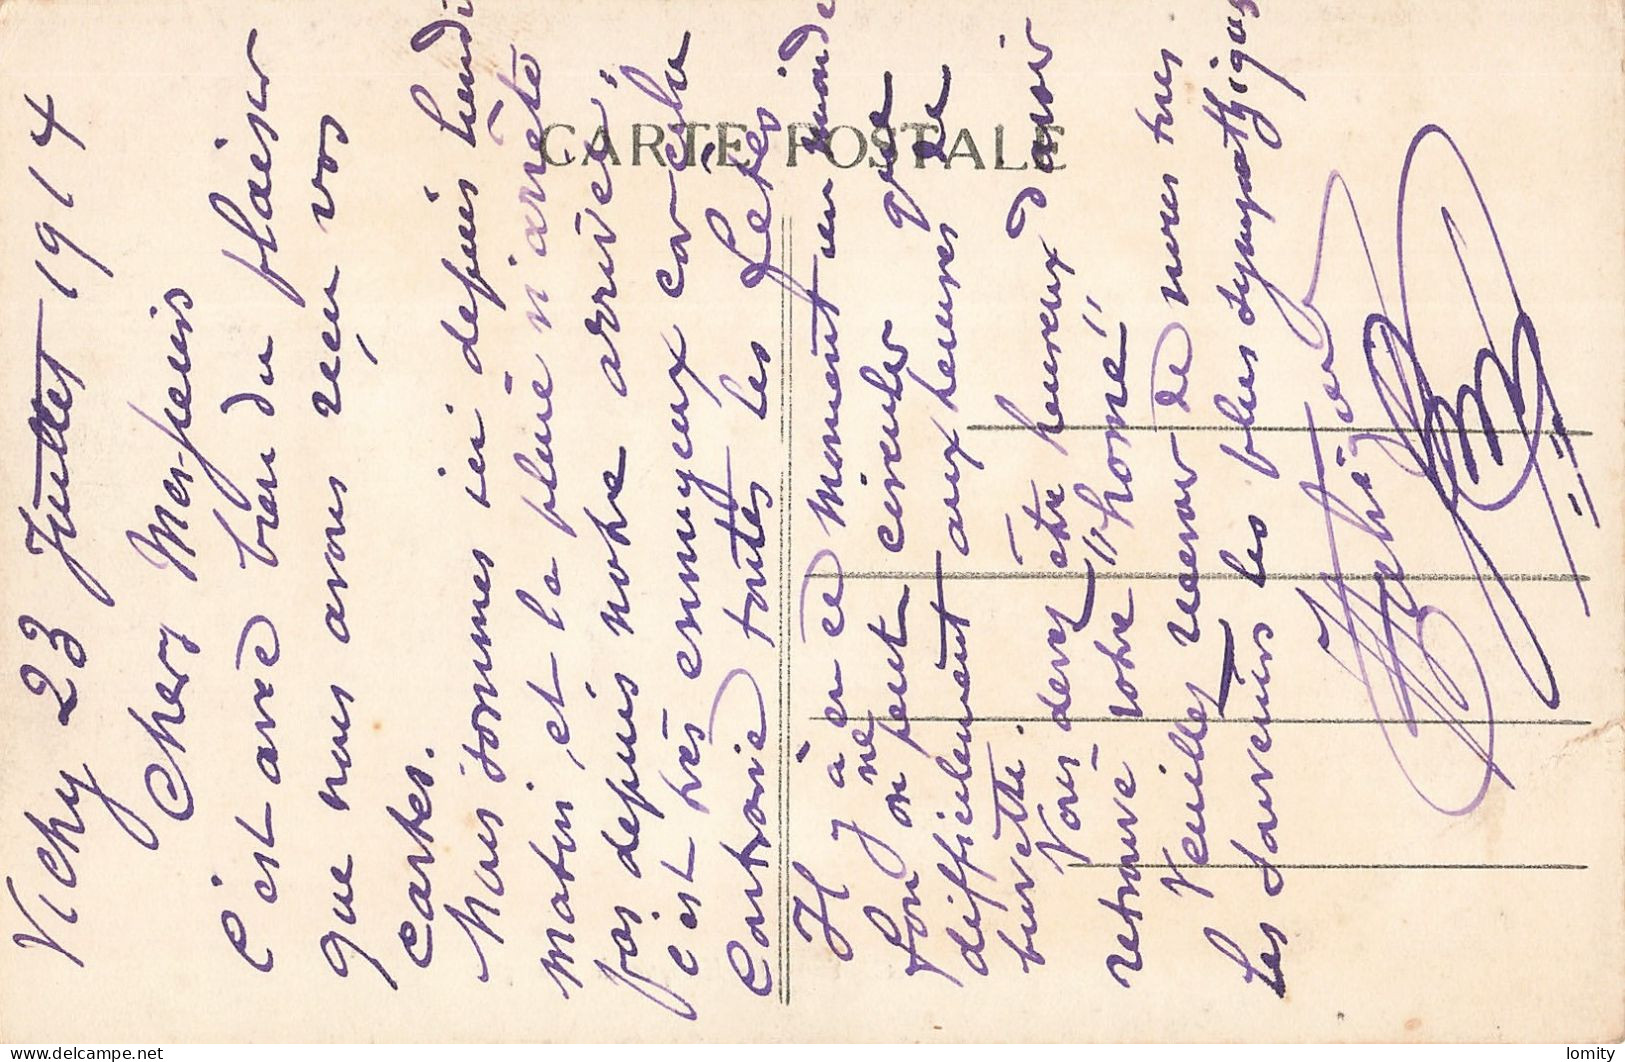 CARTE POSTALE
Vichy 23 Juillet 1914
Chers Mes
C'est avec bien du plaisir
que nous avons reçu vos
cartes.
Nous sommes ici depuis Lundi
matin et la pluie n'arrete
pas depuis notre arrivée,
c'est très ennuyeux car cela
contrarie toutes les fetes
Il y à en ce moment un monde
fou on ne peut circuler que
difficilement aux heures de
buvette.
Vous devez etre heureux d'avoir
retrouvé votre "homé"
Veuillez recevoir de nous tous
Les souvenirs les plus sympathiques
lomity
© delcampe.net